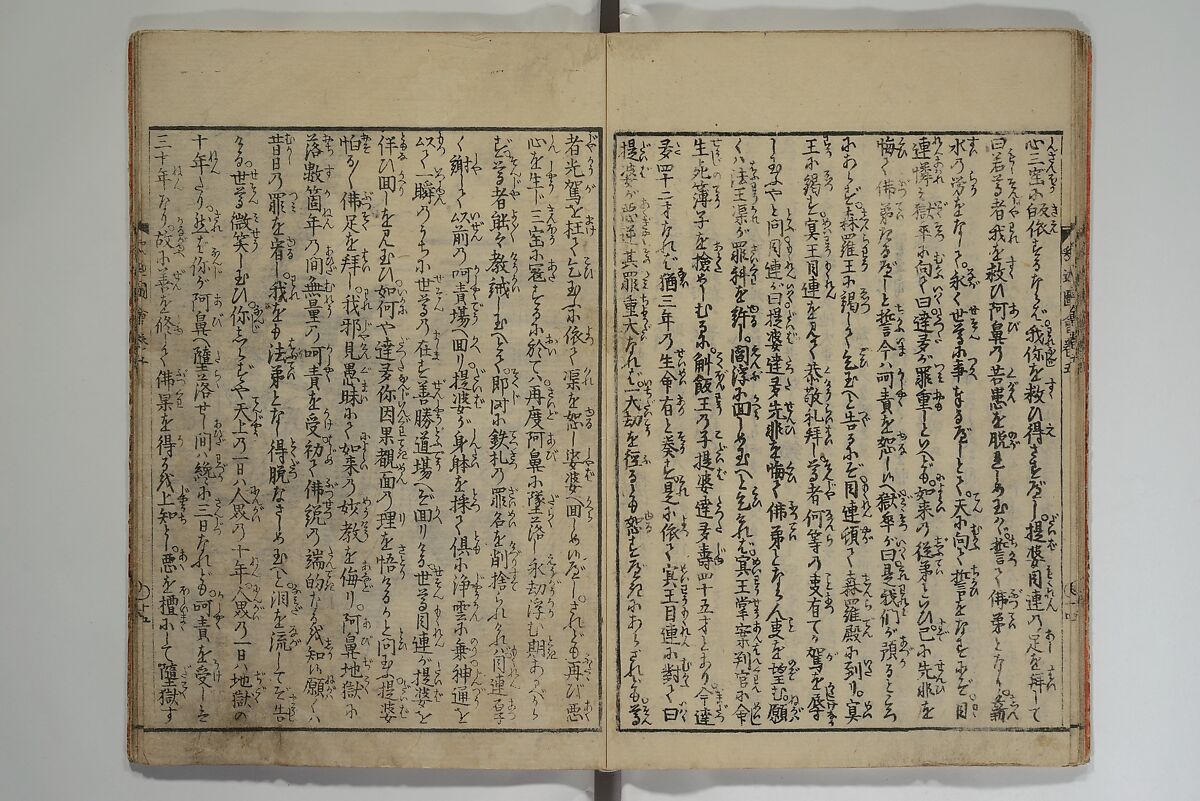 心三宝に帰依するならば我你を救ひ得さすべし。提婆目連の足を拝して
曰若尊者我を救ひ阿鼻の苦患を脱しめ玉はゞ誓て佛弟子となり。薪
水の労をなして。永く世尊に事まゐるべしとて。天に向て誓をなすにぞ。目
連憐て獄卒に向て曰達多が罪重しといへども。如来の従弟といひ已に先非を
悔て佛弟子たるべしと誓。今ハ呵責を恕し玉へ。獄卒が曰是我們が預るところ
にあらず。森羅王に謁して乞玉へと告るにぞ。目連頓て森羅殿に到り。冥
王に謁る。冥王目連を見て恭敬礼拝し。尊者何等の事有てか駕を辱
し玉ふやと問。目連が曰提婆達多先非を悔て佛弟子とならん事を望む。願
くハ法王渠が罪科を許し。閻浮に面しめ玉へと乞。それば冥王掌案判官に命
生死薄子を撿せしむるに。斛飯王の子提婆達多壽四十五才とあり。今達
多四十二才なれば。猶三年の生命有と奏す。是に依て冥王目連に對て曰
提婆が悪逆。其罪重大なれば。大劫を径るとも恕すべきにあらざれども。尊
者光駕を枉て乞玉ふに依て。渠を恕し娑婆へ回しめいべし。されども再び悪
心を生じ。三宝に寇をするに於てハ。再度阿鼻に墜落し永劫浮む期あるべから
ず。尊者能々教誡し玉へとて。即時に鉄札の罪名を削捨られけれバ。目連尊者
く謝して。以前の呵責場へ回り。提婆が身躰を採て。倶に浄雲に乗。神通を
以て一瞬のうちに世尊の在す善勝道場へぞ回りける。世尊目連が提婆を
伴ひ回しを見玉ひ。如何や達多你因果覿面の理を悟るかと問玉ふ。提婆
怕るゝ佛足を拝し。我邪見愚昧にて如来の妙教を侮り。阿鼻地獄に
落。数箇年の間無量の呵責を受。初て佛説の端的なるを知。願くハ
昔日の罪を宥し。我をも法弟となし得脱なさしめ玉へと。泪を流してぞ告
ける。世尊微笑し玉ひ。你しらずや天上の一日ハ人界の十年。人界の一日ハ地獄の
十年たり。然ば你が阿鼻へ墮落せし間ハ。纔に三日なれども呵責を受しこと
三十年なり。故に善を修して佛果を得るを上知とし。悪を檀にして墮獄す